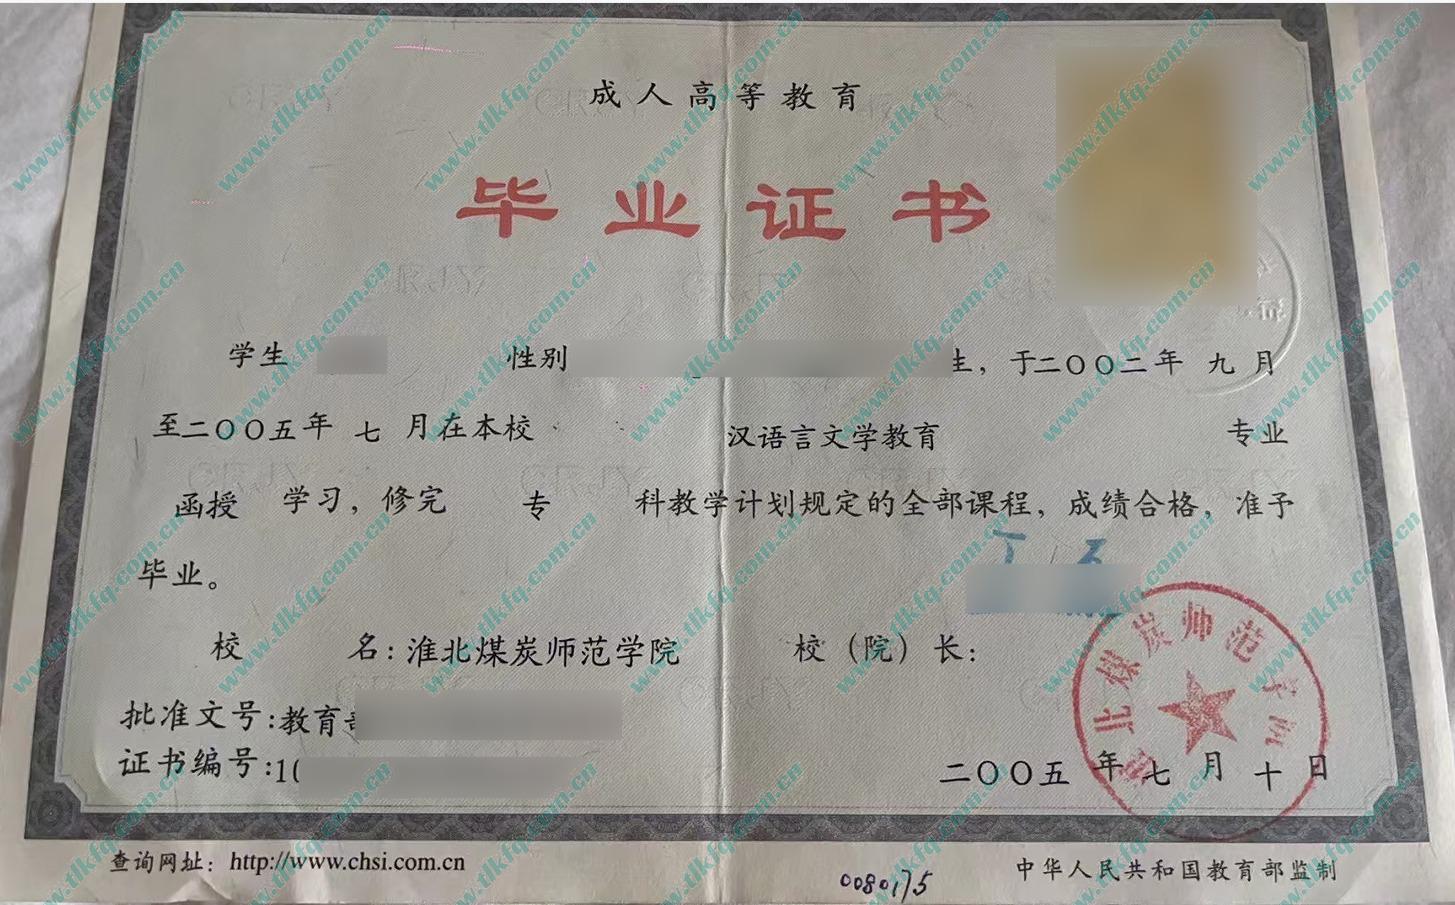 成人高等教育
毕业证书
学生 性别 生，于二〇〇二年 九月
至二〇〇五年 七 月在本校 汉语言文学教育 专业
函授 学习，修完 专 科教学计划规定的全部课程，成绩合格，准予
毕业。
校 名：淮北煤炭师范学院 校（院）长：
批准文号：教育
证书编号：1
淮北煤炭师范学院
二〇〇五 年 七 月 十 日
查询网址：http://www.chsi.com.cn
0080175
中华人民共和国教育部监制
www.tlkfq.com.cn